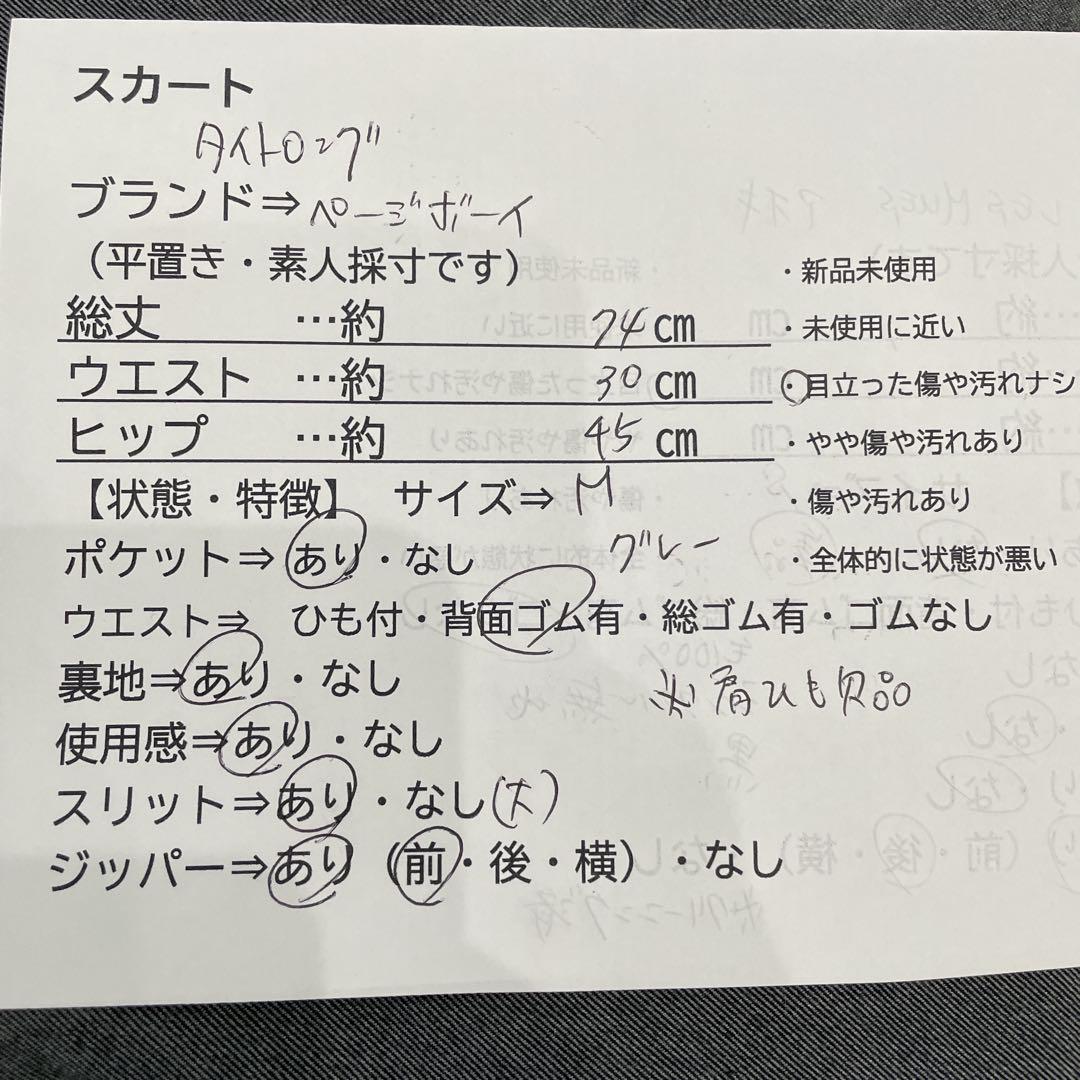 スカート
タイトロング
ブランド⇒ページボーイ
（平置き・素人採寸です）
・新品未使用
総丈 …約 74㎝
・未使用に近い
ウエスト …約 30㎝
・目立った傷や汚れナシ
ヒップ …約 45㎝
・やや傷や汚れあり
【状態・特徴】 サイズ⇒ M
・傷や汚れあり
ポケット⇒ あり・なし グレー
・全体的に状態が悪い
ウエスト⇒ ひも付・背面ゴム有・総ゴム有・ゴムなし
裏地⇒あり・なし
肩ひも欠品
使用感⇒あり・なし
スリット⇒あり・なし(大)
ジッパー⇒あり（前・後・横）・なし